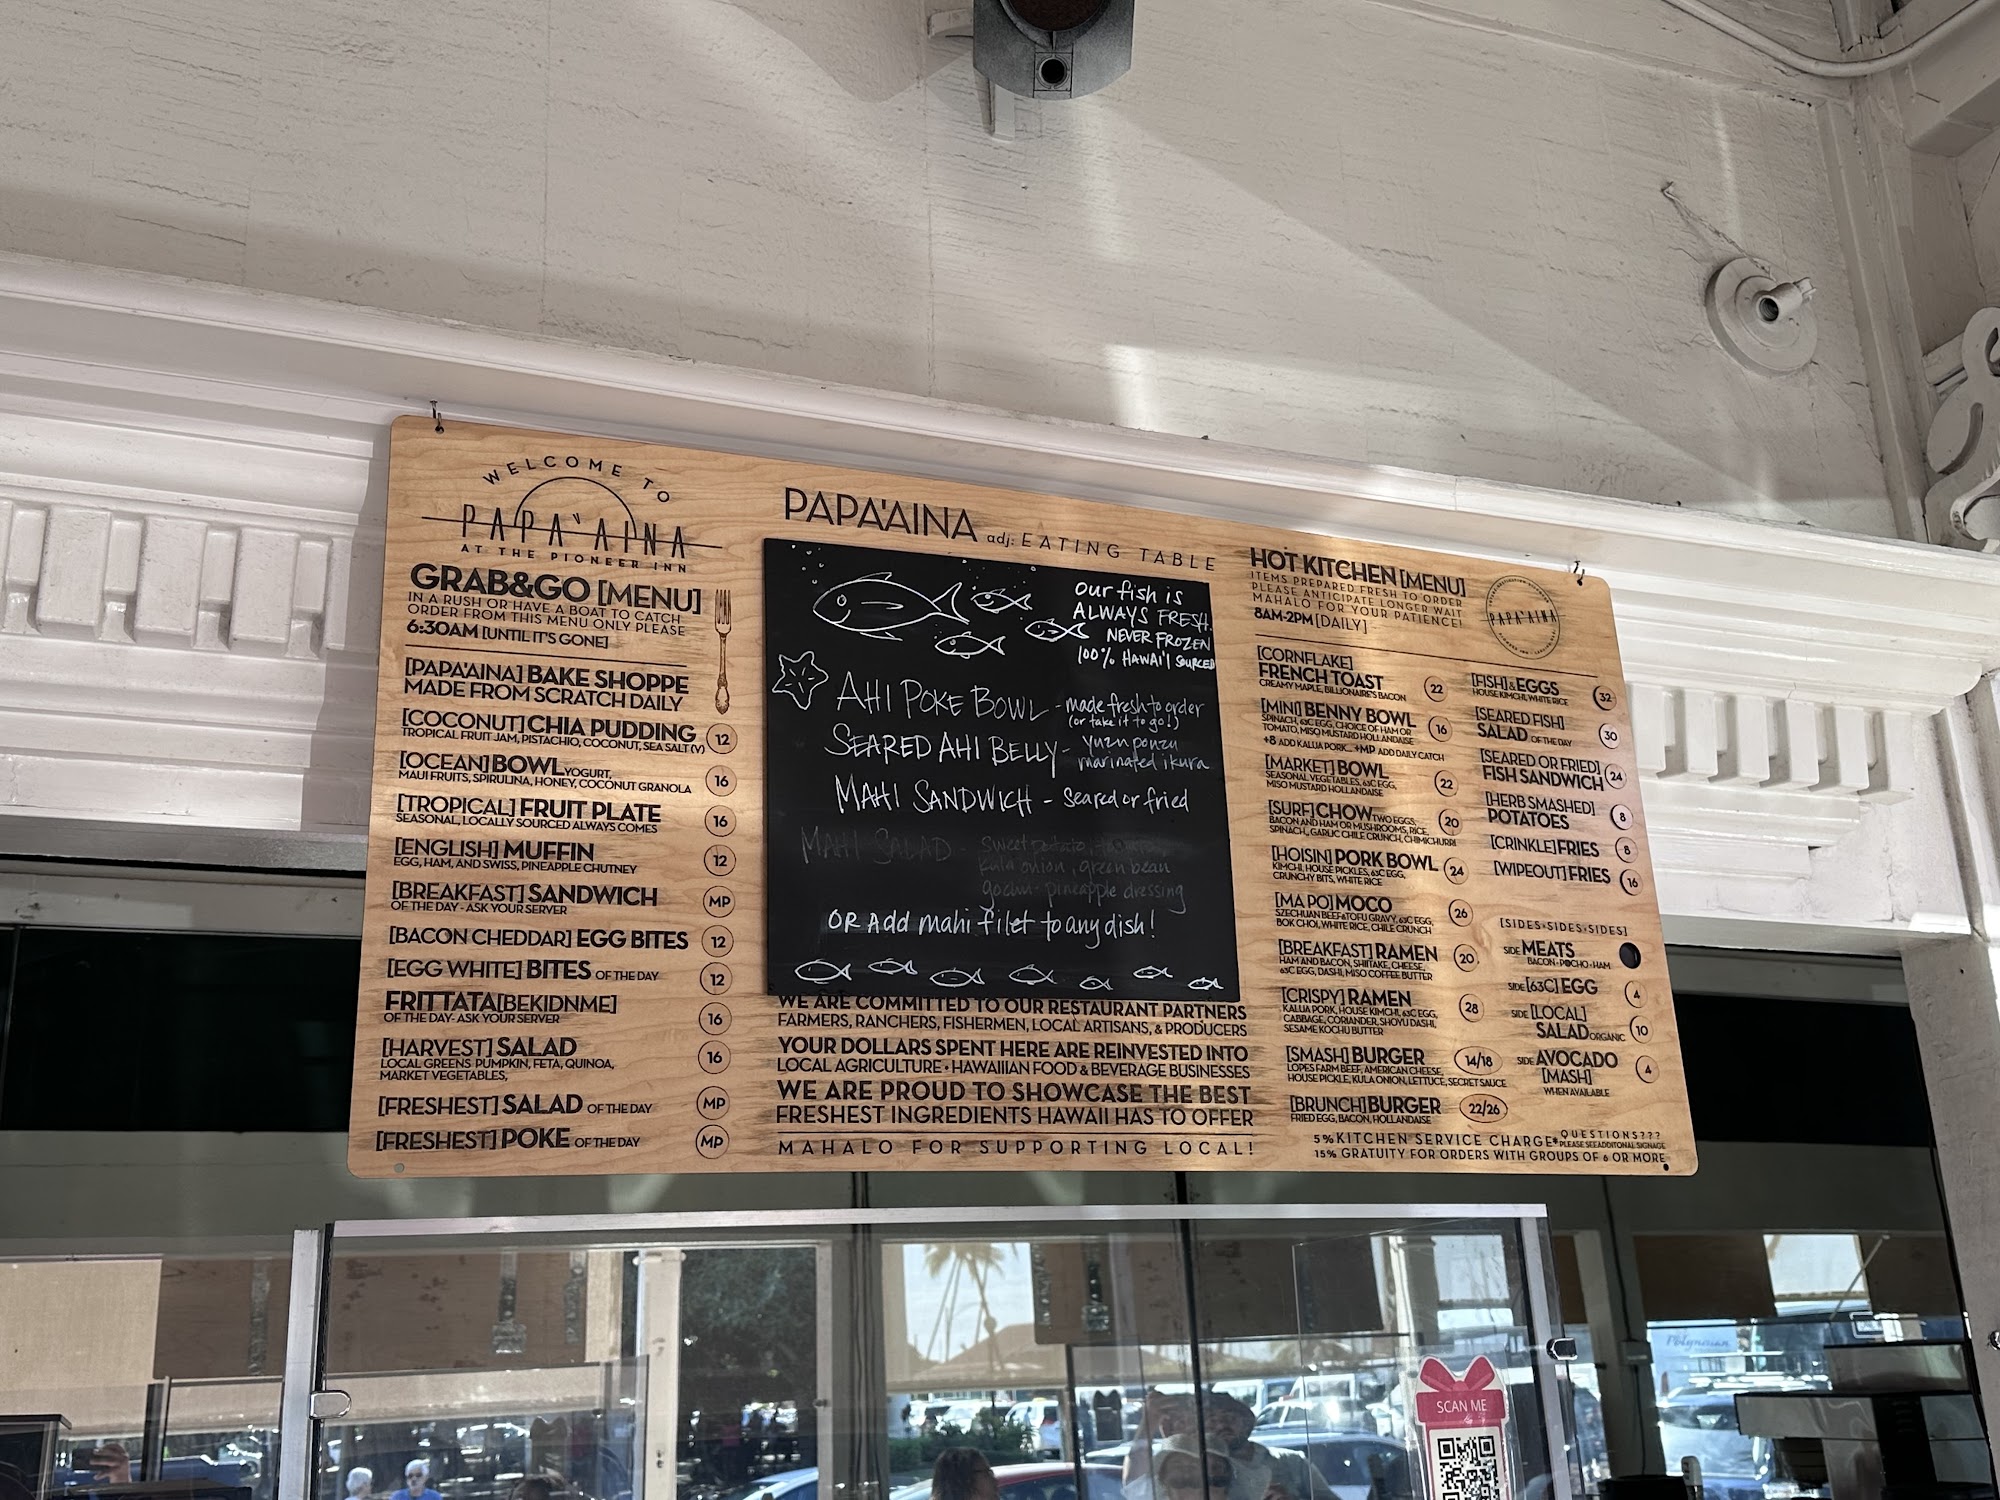 WELCOME TO
PAPA'AINA
AT THE PIONEER INN
GRAB&GO [MENU]
IN A RUSH OR HAVE A BOAT TO CATCH
ORDER FROM THIS MENU ONLY PLEASE
6:30AM [UNTIL IT'S GONE]
[PAPA'AINA] BAKE SHOPPE
MADE FROM SCRATCH DAILY
[COCONUT] CHIA PUDDING 12
TROPICAL FRUIT JAM, PISTACHIO, COCONUT, SEA SALT (V)
[OCEAN] BOWL YOGURT, 16
MAUI FRUITS, SPIRULINA, HONEY, COCONUT GRANOLA
[TROPICAL] FRUIT PLATE 16
SEASONAL, LOCALLY SOURCED ALWAYS COMES
[ENGLISH] MUFFIN 12
EGG, HAM, AND SWISS, PINEAPPLE CHUTNEY
[BREAKFAST] SANDWICH MP
OF THE DAY - ASK YOUR SERVER
[BACON CHEDDAR] EGG BITES 12
[EGG WHITE] BITES OF THE DAY 12
FRITTATA [BEKIDNME] 16
OF THE DAY- ASK YOUR SERVER
[HARVEST] SALAD 16
LOCAL GREENS PUMPKIN, FETA, QUINOA,
MARKET VEGETABLES,
[FRESHEST] SALAD OF THE DAY MP
[FRESHEST] POKE OF THE DAY MP
PAPA'AINA adj: EATING TABLE
our fish is
ALWAYS FRESH.
NEVER FROZEN
100% HAWAI'I SOURCED
AHI POKE BOWL - made fresh to order
(or take it to go!)
SEARED AHI BELLY - yuzu ponzu
marinated ikura
MAHI SANDWICH - seared or fried
MAHI SALAD - sweet potato,
kula onion, green bean
gochu-pineapple dressing
OR Add mahi filet to any dish!
WE ARE COMMITTED TO OUR RESTAURANT PARTNERS
FARMERS, RANCHERS, FISHERMEN, LOCAL ARTISANS, & PRODUCERS
YOUR DOLLARS SPENT HERE ARE REINVESTED INTO
LOCAL AGRICULTURE • HAWAIIIAN FOOD & BEVERAGE BUSINESSES
WE ARE PROUD TO SHOWCASE THE BEST
FRESHEST INGREDIENTS HAWAII HAS TO OFFER
MAHALO FOR SUPPORTING LOCAL!
HOT KITCHEN [MENU]
ITEMS PREPARED FRESH TO ORDER
PLEASE ANTICIPATE LONGER WAIT
MAHALO FOR YOUR PATIENCE!
8AM-2PM [DAILY]
PAPA'AINA
[CORNFLAKE]
FRENCH TOAST 22
CREAMY MAPLE, BILLIONAIRE'S BACON
[MINI] BENNY BOWL 16
SPINACH, 63C EGG, CHOICE OF HAM OR
TOMATO, MISO MUSTARD HOLLANDAISE
+8 ADD KALUA PORK... +MP ADD DAILY CATCH
[MARKET] BOWL 22
SEASONAL VEGETABLES, 63C EGG,
MISO MUSTARD HOLLANDAISE
[SURF] CHOW TWO EGGS, 20
BACON AND HAM OR MUSHROOMS, RICE,
SPINACH,, GARLIC CHILE CRUNCH, CHIMICHURRI
[HOISIN] PORK BOWL 24
KIMCHI, HOUSE PICKLES, 63C EGG,
CRUNCHY BITS, WHITE RICE
[MA PO] MOCO 26
SZECHUAN BEEF&TOFU GRAVY, 63C EGG,
BOK CHOI, WHITE RICE, CHILE CRUNCH
[BREAKFAST] RAMEN 20
HAM AND BACON, SHIITAKE, CHEESE,
63C EGG, DASHI, MISO COFFEE BUTTER
[CRISPY] RAMEN 28
KALUA PORK, HOUSE KIMCHI, 63C EGG,
CABBAGE, CORIANDER, SHOYU DASHI,
SESAME KOCHU BUTTER
[SMASH] BURGER 14/18
LOPES FARM BEEF, AMERICAN CHEESE,
HOUSE PICKLE, KULA ONION, LETTUCE, SECRET SAUCE
[BRUNCH] BURGER 22/26
FRIED EGG, BACON, HOLLANDAISE
[FISH] & EGGS 32
HOUSE KIMCHI, WHITE RICE
[SEARED FISH]
SALAD OF THE DAY 30
[SEARED OR FRIED]
FISH SANDWICH 24
[HERB SMASHED]
POTATOES 8
[CRINKLE] FRIES 8
[WIPEOUT] FRIES 16
[SIDES•SIDES•SIDES]
SIDE MEATS
BACON • POCHO • HAM
SIDE [63C] EGG 4
SIDE [LOCAL]
SALAD ORGANIC 10
SIDE AVOCADO 4
[MASH]
WHEN AVAILABLE
5% KITCHEN SERVICE CHARGE* QUESTIONS???
PLEASE SEE ADDITONAL SIGNAGE
15% GRATUITY FOR ORDERS WITH GROUPS OF 6 OR MORE
SCAN ME
Polynesian